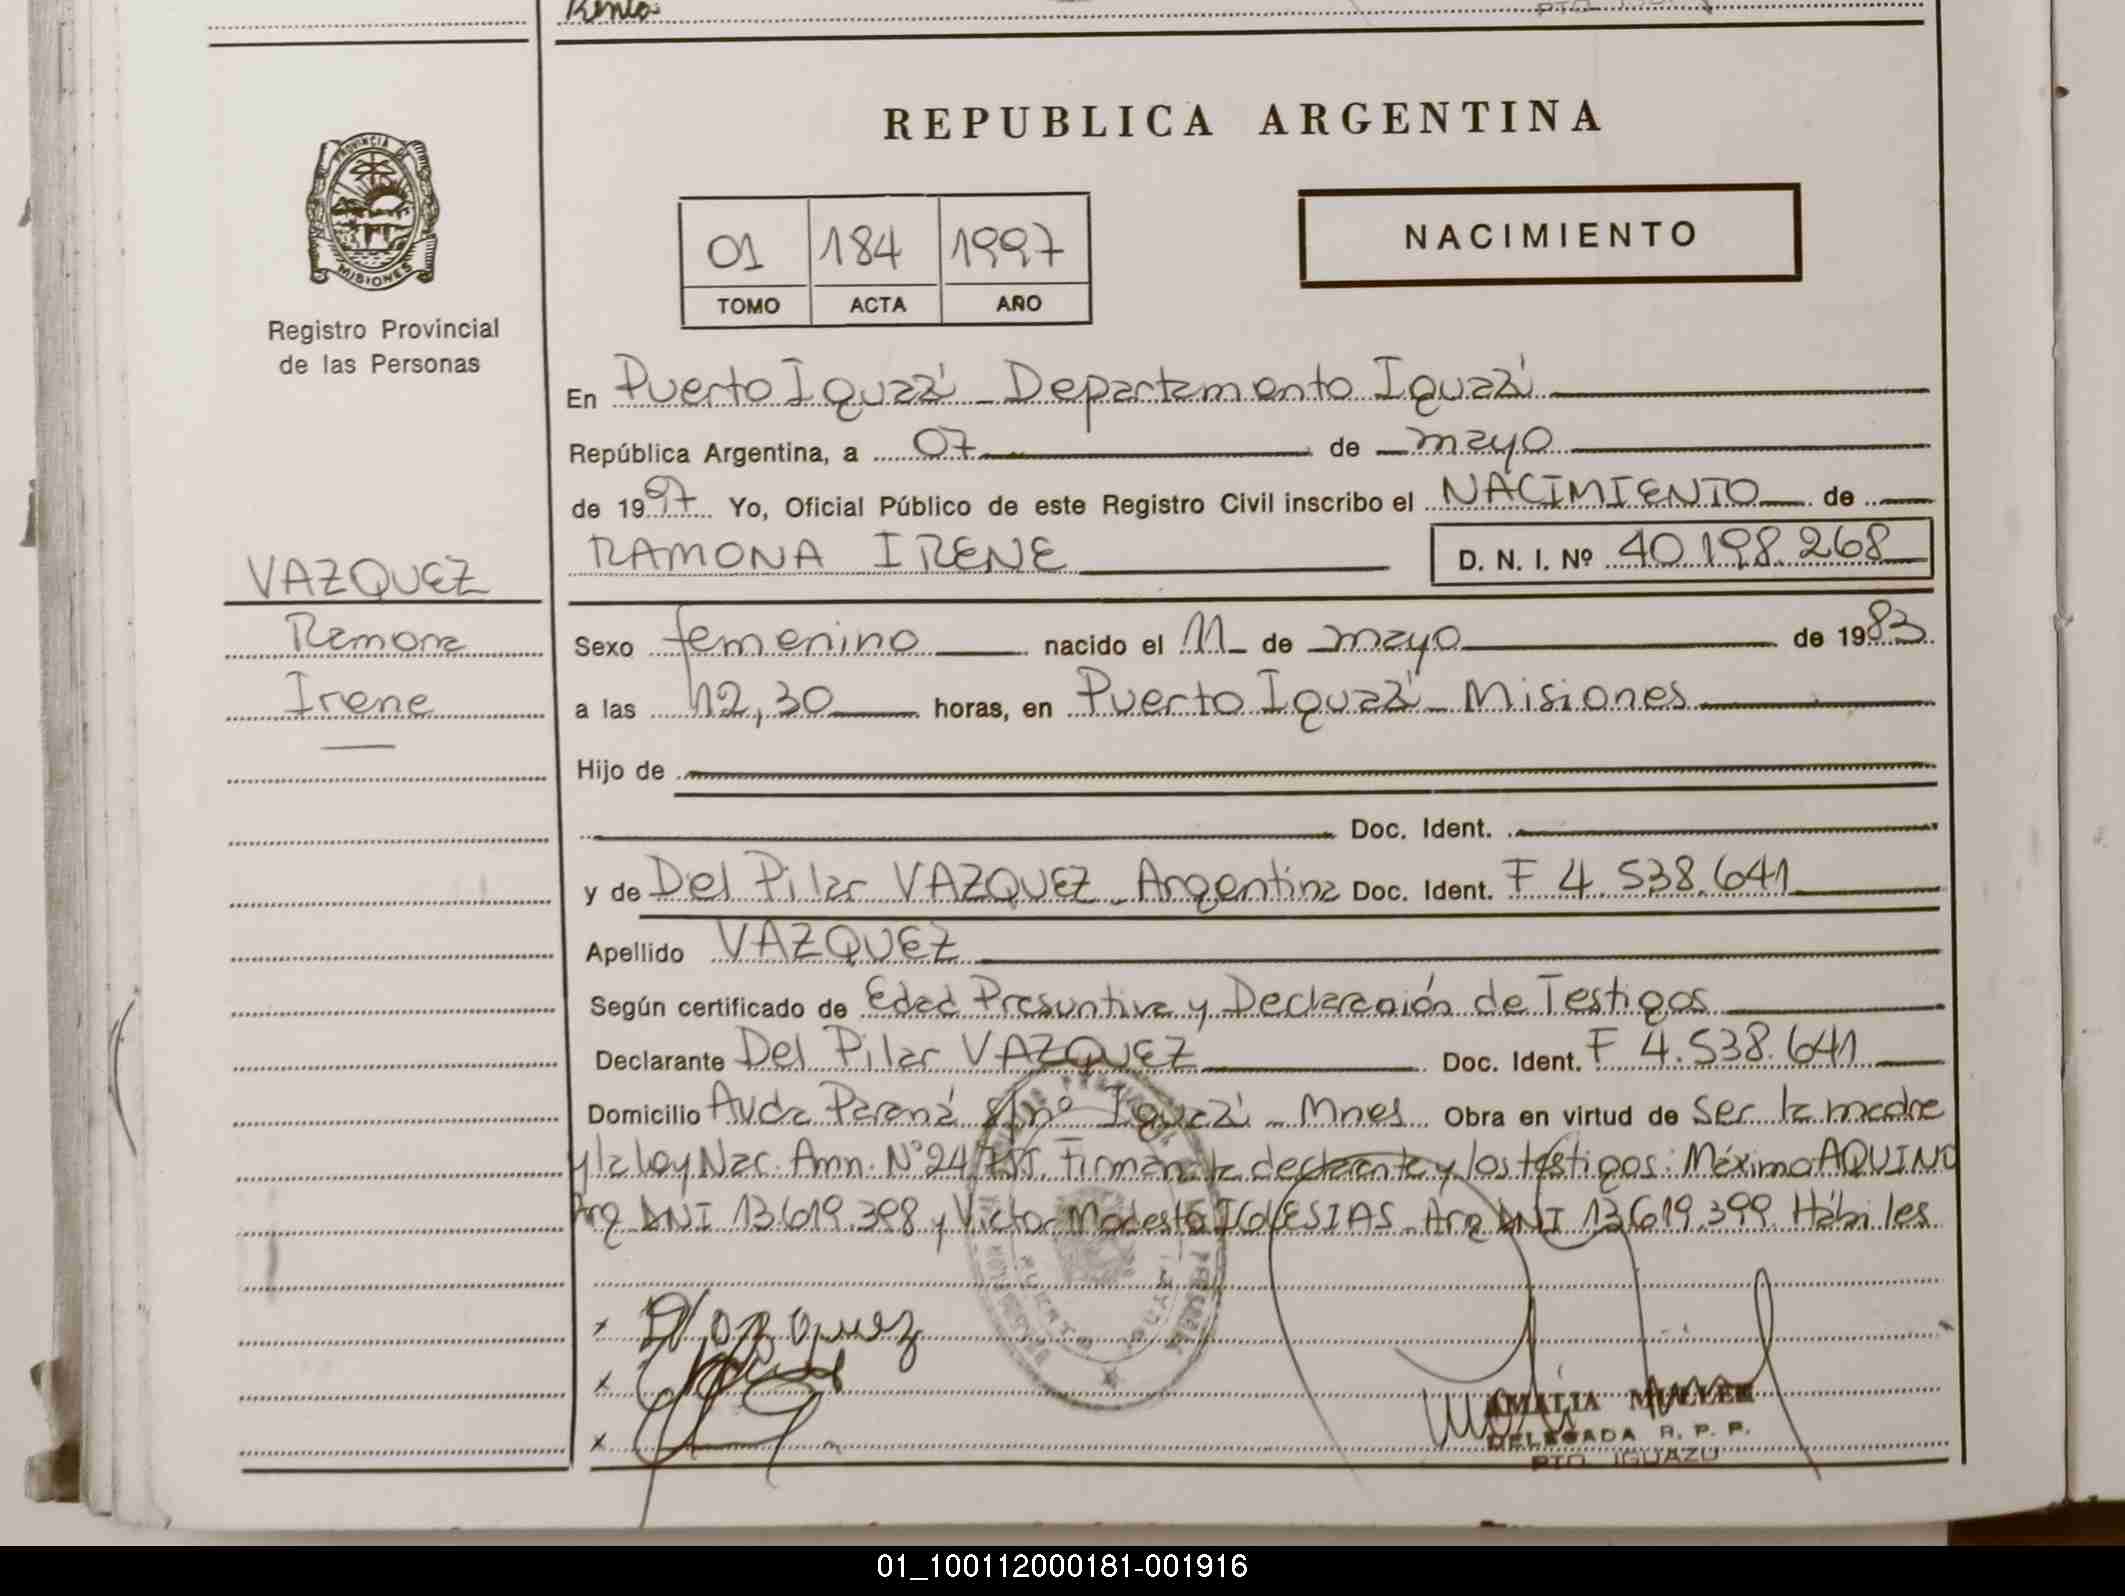 REPUBLICA ARGENTINA
PROVINCIA DE
MISIONES
Registro Provincial
de las Personas
01 184 1997
TOMO ACTA AÑO
NACIMIENTO
En Puerto Iguazú - Departamento Iguazú
República Argentina, a 07 de mayo
de 1997 Yo, Oficial Público de este Registro Civil inscribo el NACIMIENTO de
RAMONA IRENE D. N. I. Nº 40.198.268
VAZQUEZ
Ramona
Irene
Sexo femenino nacido el 11 de mayo de 1983
a las 12,30 horas, en Puerto Iguazú - Misiones
Hijo de
Doc. Ident.
y de Del Pilar VAZQUEZ - Argentina Doc. Ident. F 4.538.641
Apellido VAZQUEZ
Según certificado de Edad Presuntiva y Declaración de Testigos
Declarante Del Pilar VAZQUEZ Doc. Ident. F 4.538.641
Domicilio Avda Paraná s/nº Iguazú - Mnes Obra en virtud de ser la madre
y la Ley Nac. Amn. Nº 24.755. Firman la declarante y los testigos: Máximo AQUINO
Arg DNI 13.619.398 y Victor Modesto IGLESIAS - Arg DNI 13.619.399 Hábiles
AMALIA MULLER
DELEGADA R. P. P.
PTO. IGUAZU
01_100112000181-001916